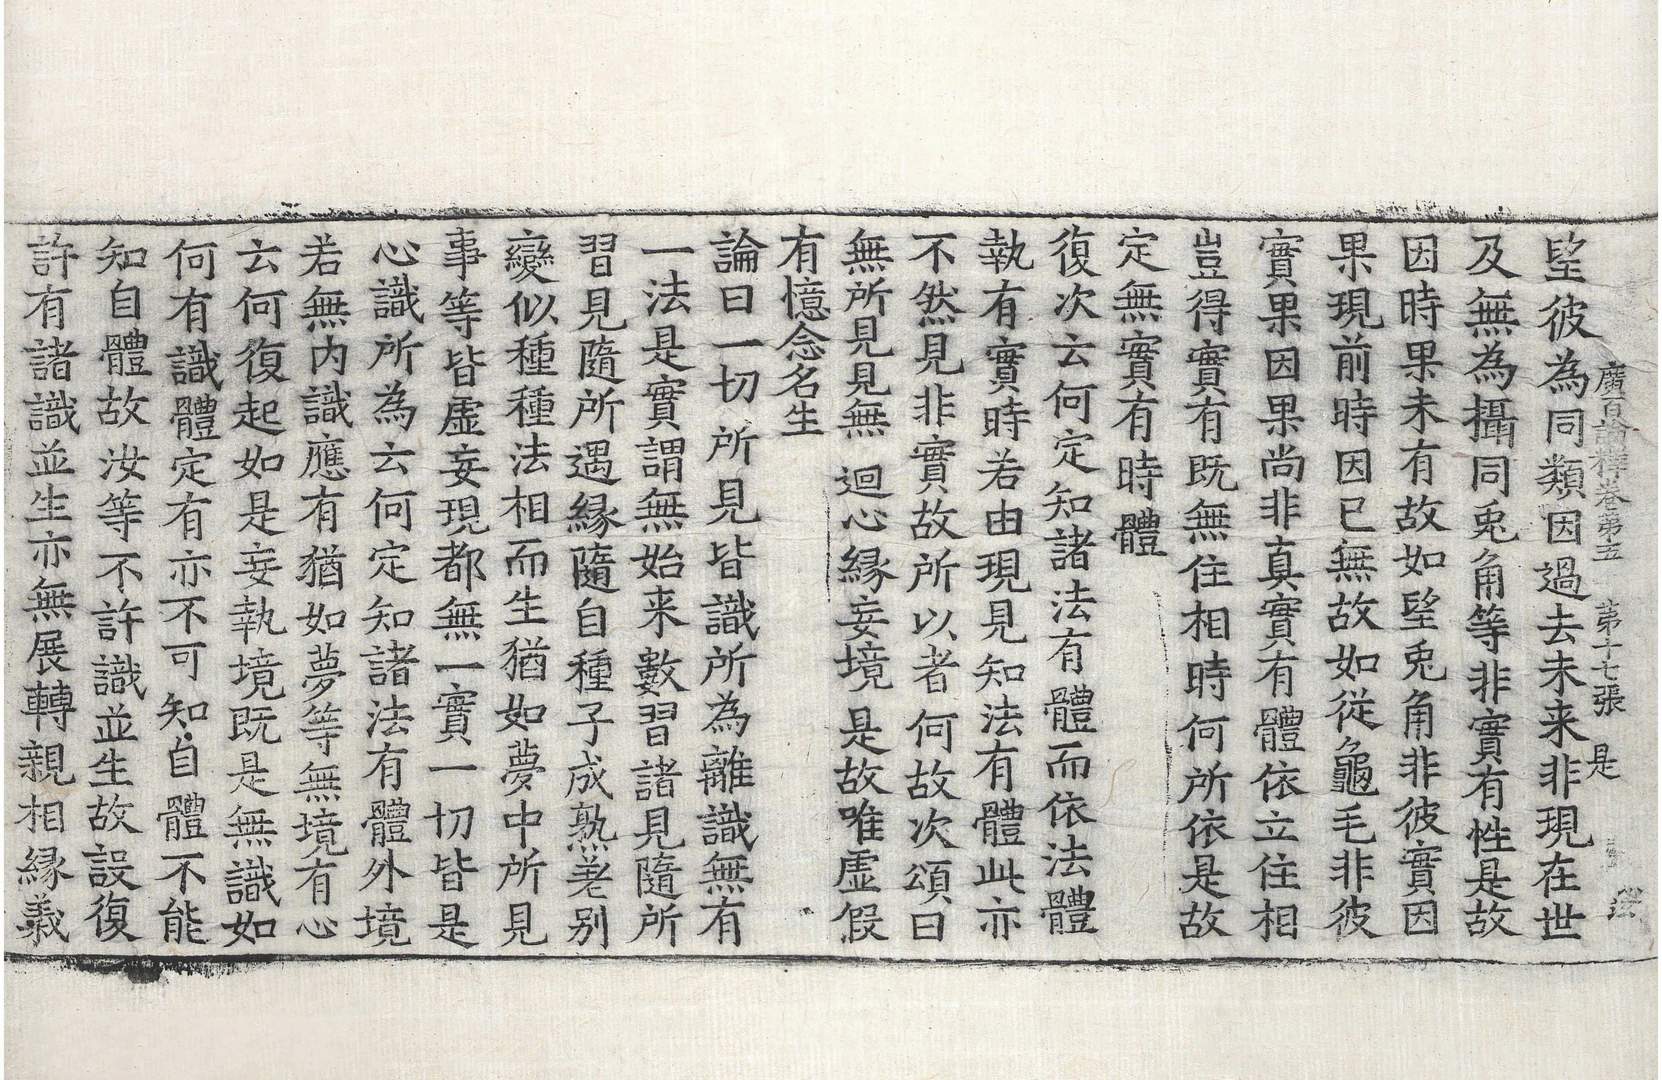 廣百論釋卷第五 第十七張 是
望彼為同類因過去未来非現在世
及無為攝同兎角等非實有性是故
因時果未有故如望兎角非彼實因
果現前時因已無故如從龜毛非彼
實果因果尚非真實有體依立住相
豈得實有既無住相時何所依是故
定無實有時體
復次云何定知諸法有體而依法體
執有實時若由現見知法有體此亦
不然見非實故所以者何故次頌曰
無所見見無 迴心縁妄境 是故唯虛假
有憶念名生
論曰一切所見皆識所為離識無有
一法是實謂無始来數習諸見隨所
習見隨所遇縁隨自種子成熟差别
變似種種法相而生猶如夢中所見
事等皆虛妄現都無一實一切皆是
心識所為云何定知諸法有體外境
若無内識應有猶如夢等無境有心
云何復起如是妄執境既是無識如
何有識體定有亦不可知自體不能
知自體故汝等不許識並生故設復
許有諸識並生亦無展轉親相縁義